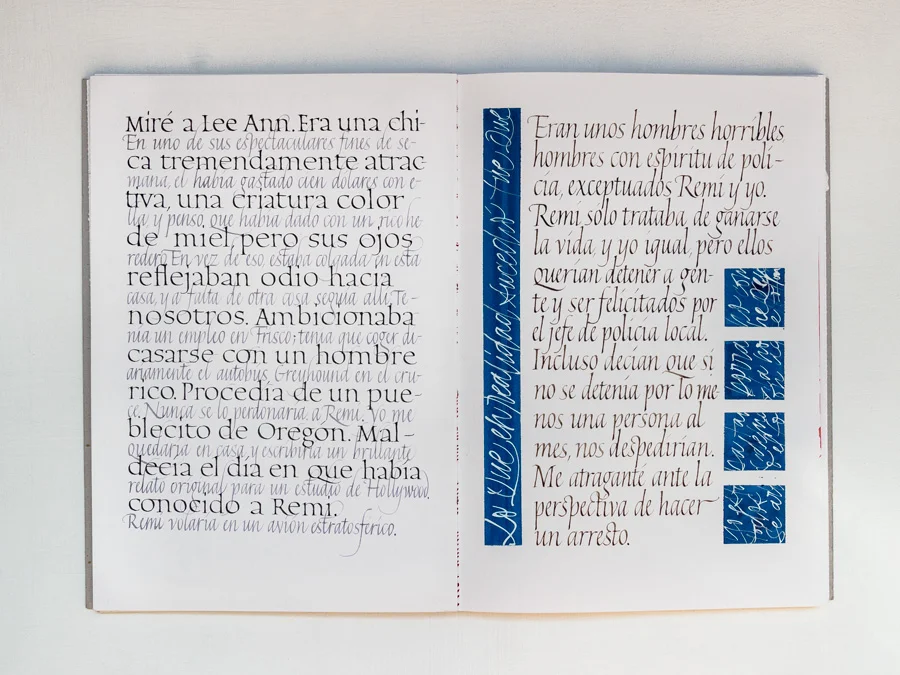 Miré a Lee Ann. Era una chi-
En uno de sus espectaculares fines de se-
ca tremendamente atrac-
mana, el había gastado cien dólares con e-
tiva, una criatura color
lla, y pensó, que había dado con un rico he-
de miel, pero sus ojos
redero. En vez de eso, estaba colgada en esta
reflejaban odio hacia
casa, y a falta de otra cosa seguía allí. Te-
nosotros. Ambicionaba
nía un empleo en Frisco; tenía que coger di-
casarse con un hombre
ariamente el autobús Greyhound en el cru-
rico. Procedía de un pue-
ce. Nunca se lo perdonaría a Remi. Yo me
blecito de Oregón. Mal-
quedaría en casa y escribiría un brillante
decía el día en que había
relato original para un estudio de Hollywood.
conocido a Remi.
Remi volaría en un avión estratosférico.
Lo que en realidad sucedió fue que
Eran unos hombres horribles,
hombres con espíritu de poli-
cía, exceptuados Remi y yo.
Remi sólo trataba de ganarse
la vida, y yo igual, pero ellos
querían detener a gen-
te y ser felicitados por
el jefe de policía local.
Incluso decían que si
no se detenía por lo me-
nos una persona al
mes, nos despedirían.
Me atraganté ante la
perspectiva de hacer
un arresto.